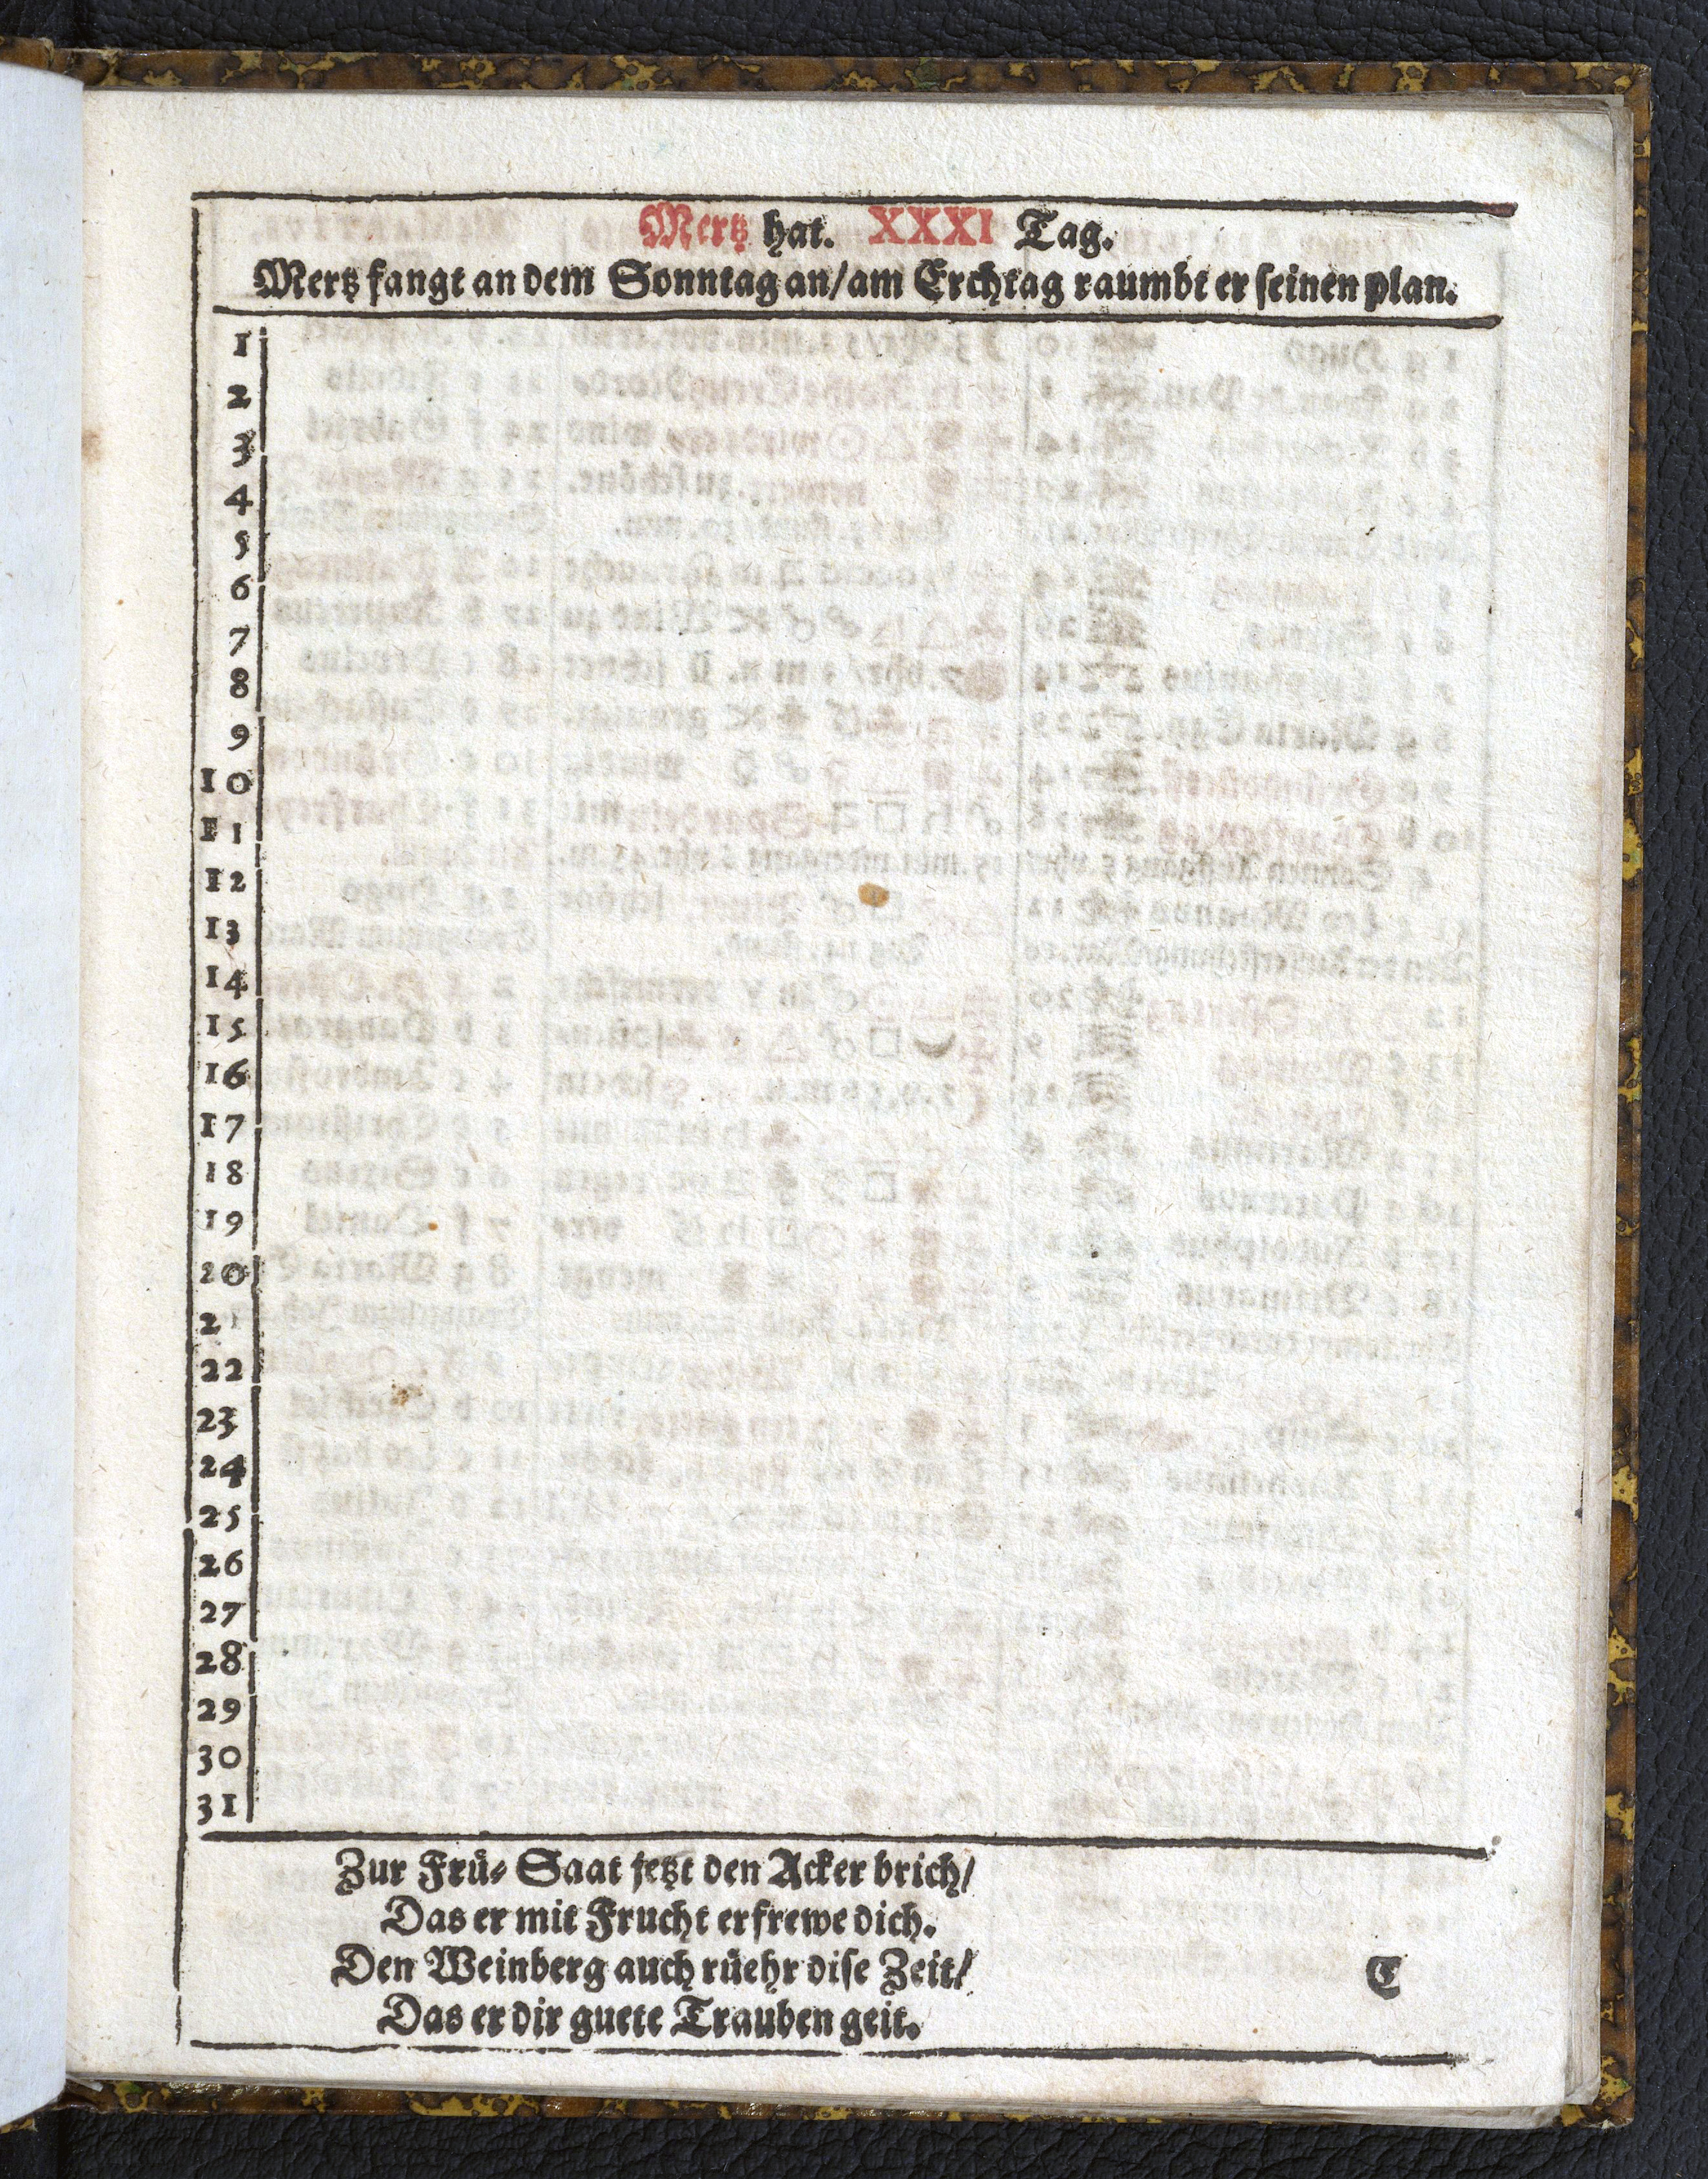 Mertz hat. XXXI Tag.
Mertz fangt an dem Sonntag an/am Erchtag raumbt er seinen plan.
1
2
3
4
5
6
7
8
9
10
11
12
13
14
15
16
17
18
19
20
21
22
23
24
25
26
27
28
29
30
31
Zur Frü- Saat jetzt den Acker brich/
Das er mit Frucht erfrewe dich.
Den Weinberg auch rüehr dise Zeit/
Das er dir guete Trauben geit.
C